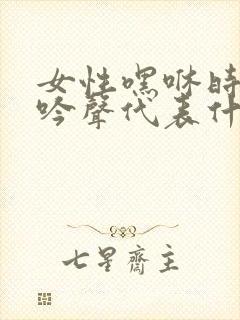 女性嘿咻時
吟聲代表什
七星齋主